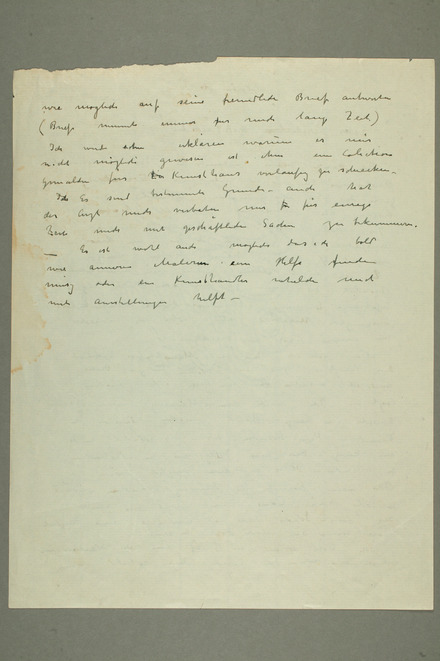 wie möglich auf seine freundliche Briefe antworten
(Briefe nimmt immer für mich lang Zeit)
Ich wird ihm erklären warum es mir
nicht möglich gewesen ist, ihm eine Colection
gemälden fürs Kunsthaus vorlaufig zu schicken.
Es sind bestimmte Grunde – auch hat
der Arzt mich verboten mir für einige
Zeit mich mit geschäftlichen Sachen zu bekummern.
— Es ist wohl auch möglich das ich bald
wie anderen Malern eine Hilfe finden
muss oder ein Kunsthandler und
mit Ausstellungen hilft —